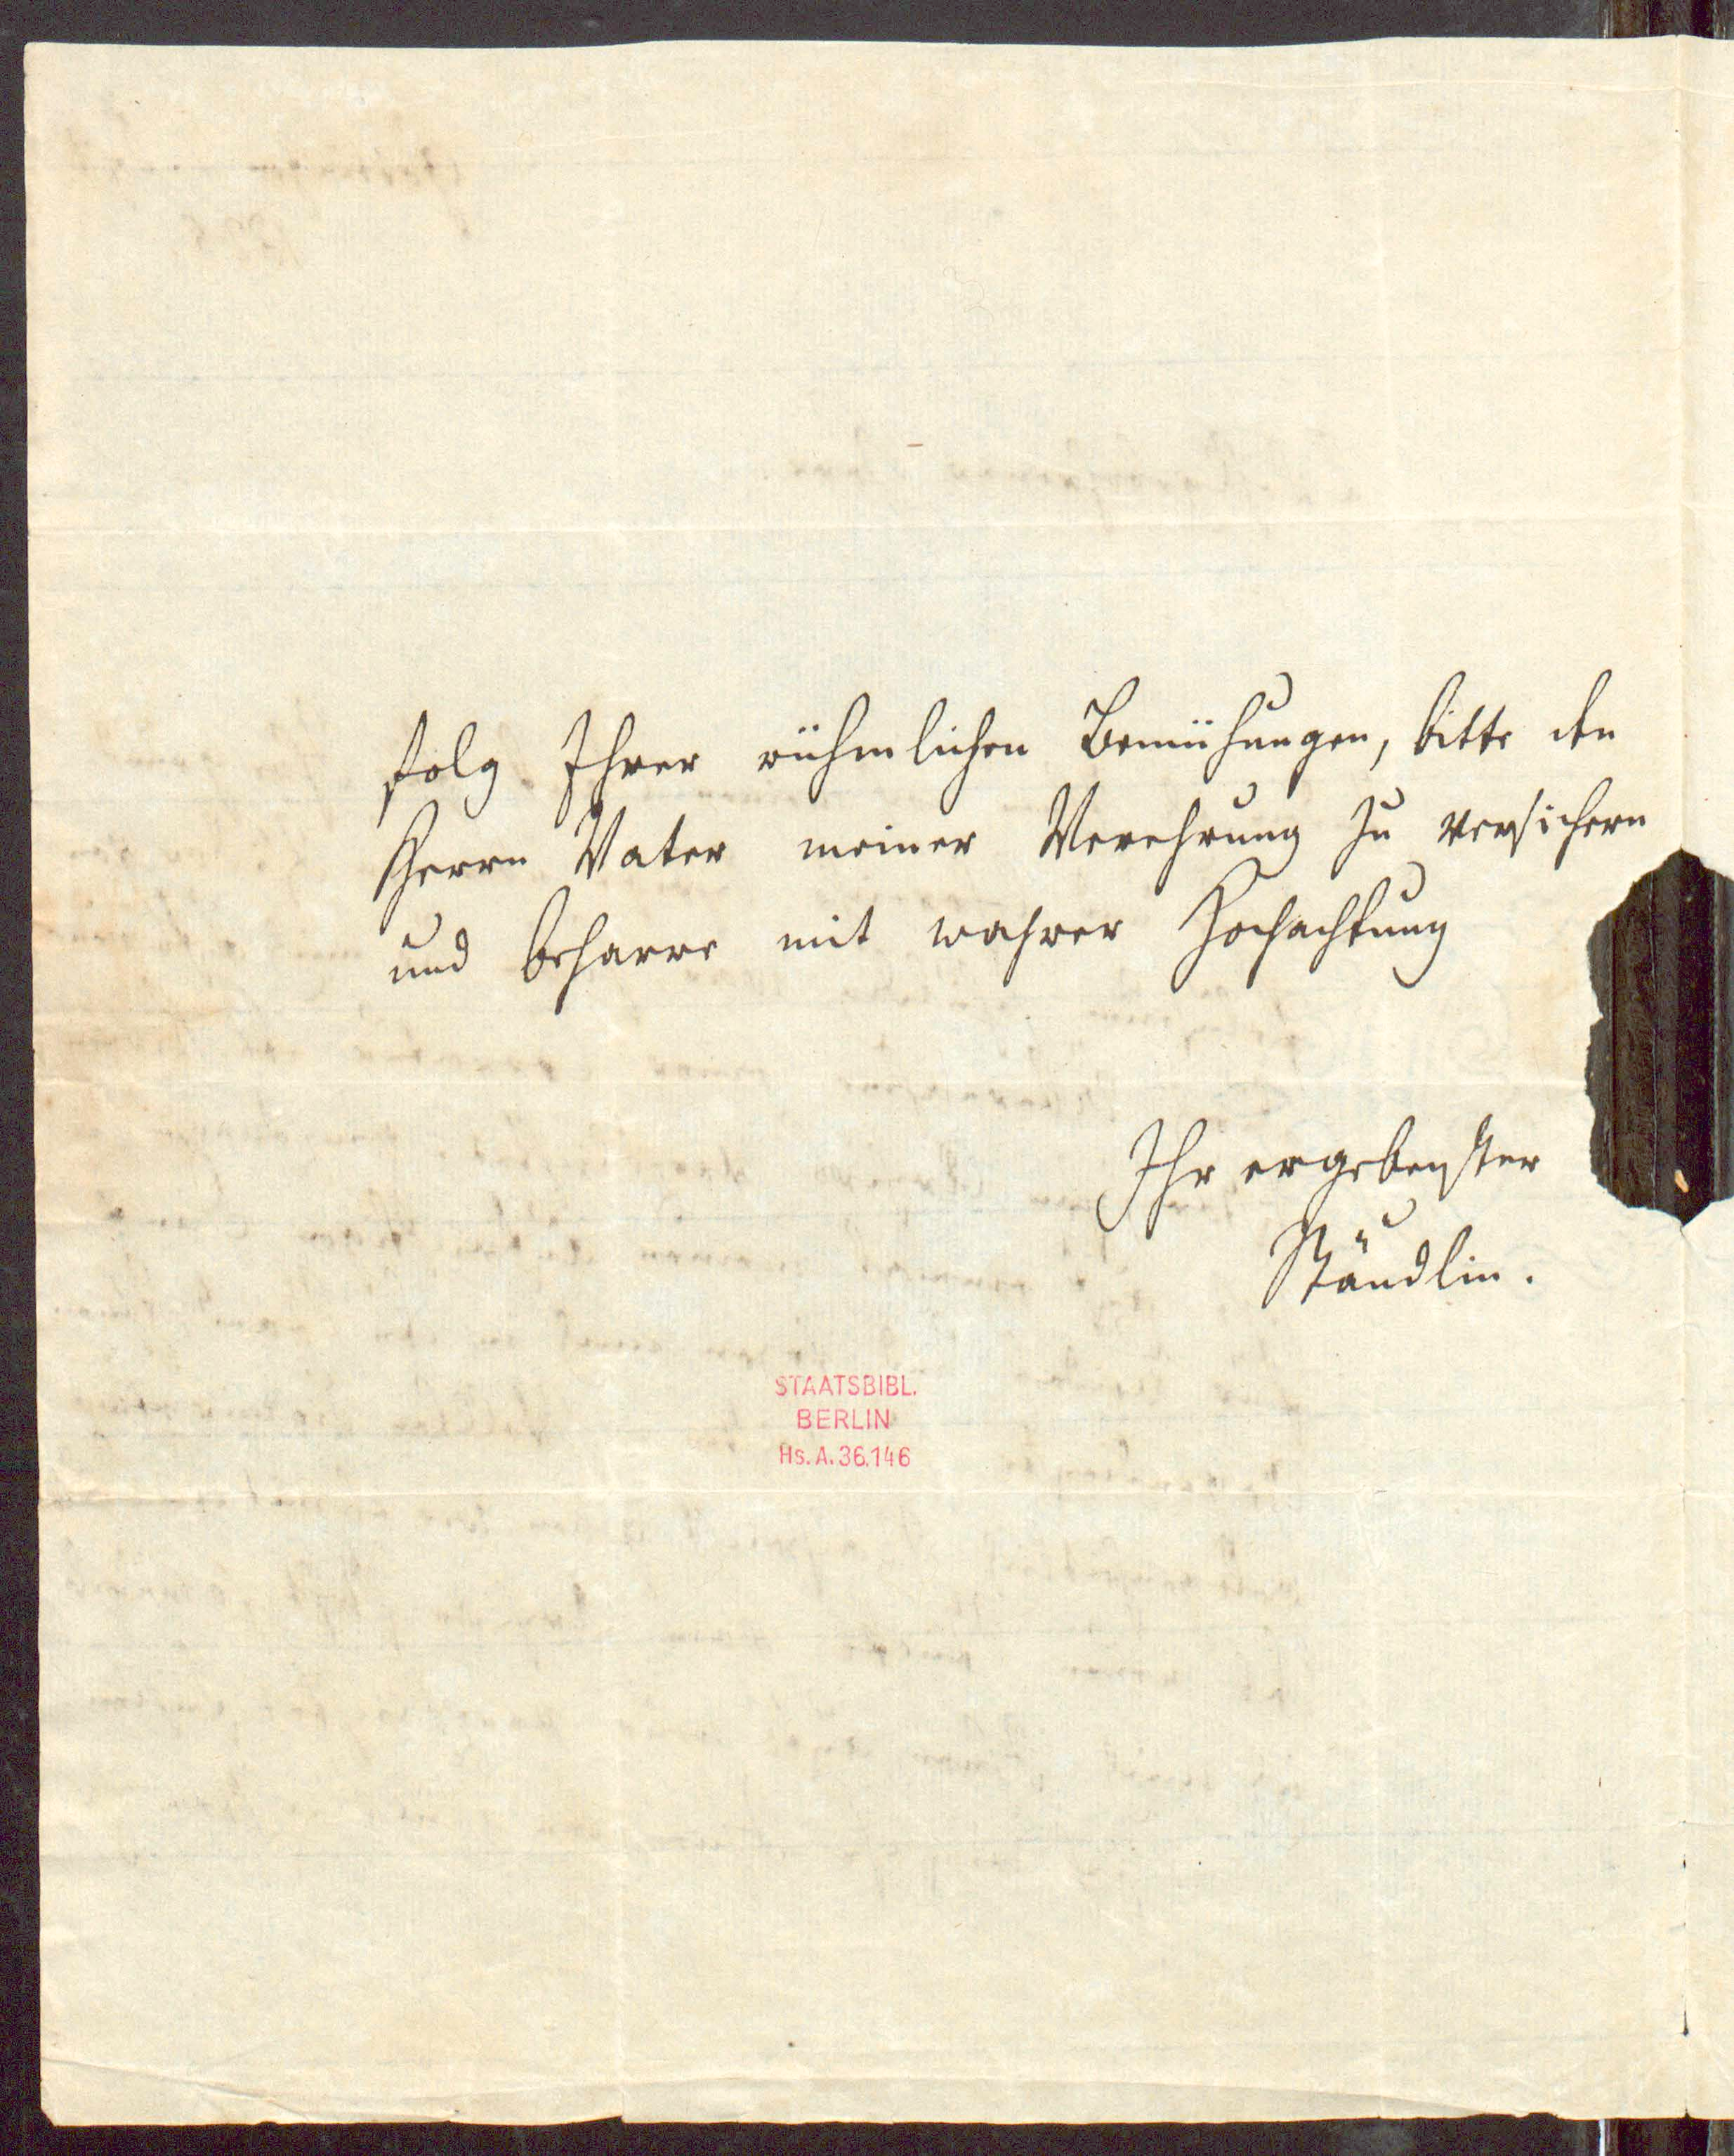 folg Ihrer rühmlichen Bemühungen, bitte den
Herrn Vater meiner Verehrung zu versichern
und beharre mit wahrer Hochachtung
Ihr ergebenster
Stäudlin.
STAATSBIBL.
BERLIN
Hs. A. 36.146